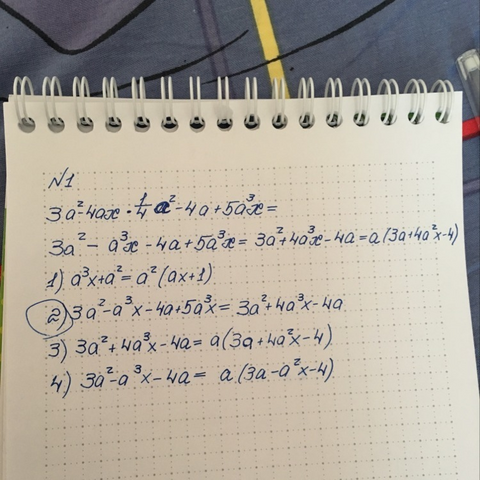 №1
3a²-4ax·1/4a²-4a+5a³x=
3a²-a³x-4a+5a³x=3a²+4a³x-4a=a(3a+4a²x-4)
1) a³x+a²=a²(ax+1)
2) 3a²-a³x-4a+5a³x=3a²+4a³x-4a
3) 3a²+4a³x-4a=a(3a+4a²x-4)
4) 3a²-a³x-4a= a(3a-a²x-4)